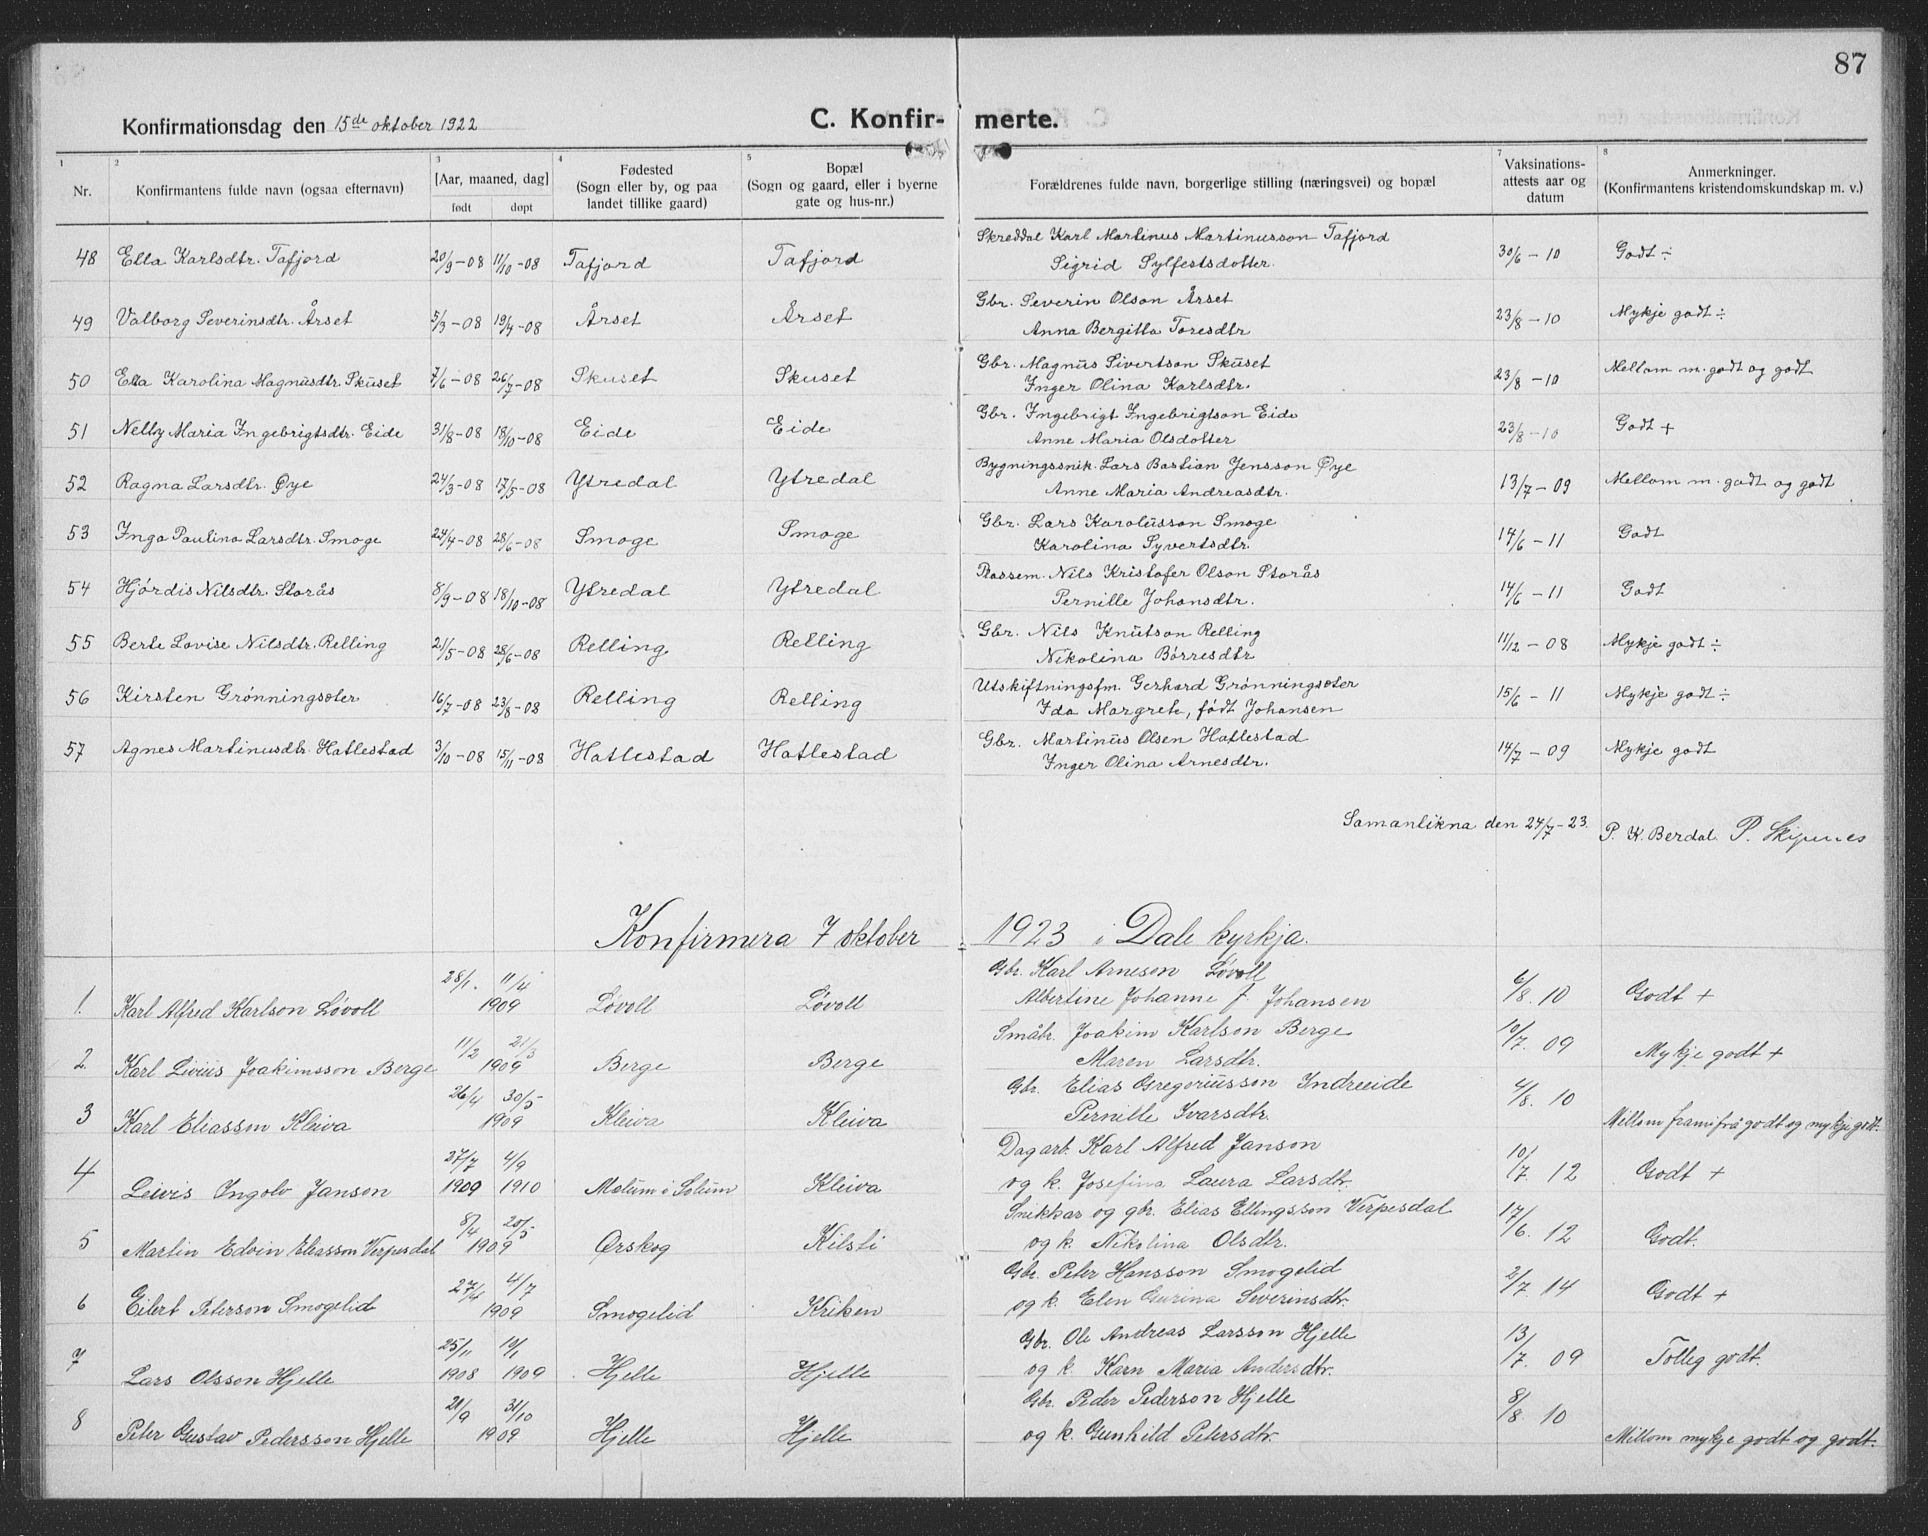 87
Konfirmationsdag den 15de oktober 1922 C. Konfir- merte.
1 2 3 4 5 7 8
Nr. Konfirmantens fulde navn (ogsaa efternavn) [Aar, maaned, dag] født døpt Fødested (Sogn eller by, og paa landet tillike gaard) Bopæl (Sogn og gaard, eller i byerne gate og hus-nr.) Forældrenes fulde navn, borgerlige stilling (næringsvei) og bopæl Vaksinations-attests aar og datum Anmerkninger. (Konfirmantens kristendomskundskap m. v.)
48 Ella Karlsdtr. Tafjord 20/9-08 11/10-08 Tafjord Tafjord Skreddal Karl Martinus Martinusson Tafjord 30/6-10 Godt ÷
Sigrid Sylfestsdotter.
49 Valborg Severinsdtr. Årset 5/3-08 19/4-08 Årset Årset Gbr. Severin Olson Årset 23/8-10 Mykje godt ÷
Anna Bergitta Toresdtr
50 Ella Karolina Magnusdtr. Skuset 7/6-08 26/7-08 Skuset Skuset Gbr. Magnus Sivertson Skuset 23/8-10 Mellom m. godt og godt
Inger Olina Karlsdtr.
51 Nelly Maria Ingebrigtsdtr. Eide 31/8-08 18/10-08 Eide Eide Gbr. Ingebrigt Ingebrigtson Eide 23/8-10 Godt +
Anne Maria Olsdotter
52 Ragna Larsdtr. Øye 24/3-08 17/5-08 Ytredal Ytredal Bygningssnik. Lars Bastian Jensson Øye 13/7-09 Mellom m. godt og godt
Anne Maria Andreasdtr.
53 Inga Paulina Larsdtr. Smoge 24/4-08 28/6-08 Smoge Smoge Gbr. Lars Karolusson Smoge 14/6-11 Godt
Karolina Syvertsdtr.
54 Hjördis Nilsdtr. Storås 8/9-08 18/10-08 Ytredal Ytredal Nils Kristofer Olson Storås 14/6-11 Godt
Pernille Johansdtr.
55 Berte Lovise Nilsdtr. Relling 21/5-08 28/6-08 Relling Relling Gbr. Nils Knutson Relling 11/12-08 Mykje godt ÷
Nikolina Börresdtr
56 Kirsten Grönningsæter 16/7-08 23/8-08 Relling Relling Utskiftningsfm. Gerhard Grönningsæter 15/6-11 Mykje godt ÷
Ida Margrete, født Johansen
57 Agnes Martinusdtr. Hatlestad 3/10-08 15/11-08 Hatlestad Hatlestad Gbr. Martinus Olsen Hatlestad 14/7-09 Mykje godt
Inger Olina Arnesdtr.
Samanlikna den 24/7-23. P. K. Berdal. P. Skipenes
Konfirmera 7 oktober 1923 i Dale kyrkja.
1. Karl Alfred Karlson Lövoll 28/1. 11/4 1909 Lövoll Lövoll Gbr. Karl Arneson Lövoll 6/8. 10 Godt +
Albertine Johanne f. Johansen
2. Karl Livius Joakimsson Berge 11/2 21/3 1909 Berge Berge Småbr. Joakim Karlson Berge 10/7. 09 Mykje godt +
Maren Larsdtr.
3 Karl Eliasson Kleiva 26/4 30/5 1909 Kleiva Kleiva Gbr. Elias Gregoriusson Indreeide 4/8. 10 Millom framifrå godt og mykje godt.
Pernille Ivarsdtr.
4 Leivis Ingolv Janson 27/7 1909 4/9 1910 Mælum i Solum Kleiva Dagarb. Karl Alfred Janson 10/7. 12 Godt +
og k. Josefina Laura Larsdtr.
5 Martin Edvin Eliasson Verpesdal 8/4 20/5 1909 Ørskog Kilsti Snikkar og gbr. Elias Ellingsson Verpesdal 17/6. 12 Godt.
og k. Nikolina Olsdtr.
6 Eilert Peterson Smogelid 27/4 4/7 1909 Smogelid Kriken Gbr. Peter Hansson Smogelid 2/7. 14 Godt +
og k. Elen Gurina Severinsdtr.
7 Lars Olsson Hjelle 25/11 1908 10/1 1909 Hjelle Hjelle Gbr. Ole Andreas Larsson Hjelle 13/7. 09 Tolleg godt.
og k. Karn Maria Andersdtr.
8 Peter Gustav Pedersson Hjelle 21/9 31/10 1909 Hjelle Hjelle Gbr. Peder Pederson Hjelle 8/8. 10 Millom mykje godt og godt.
og k. Gunhild Petersdtr.